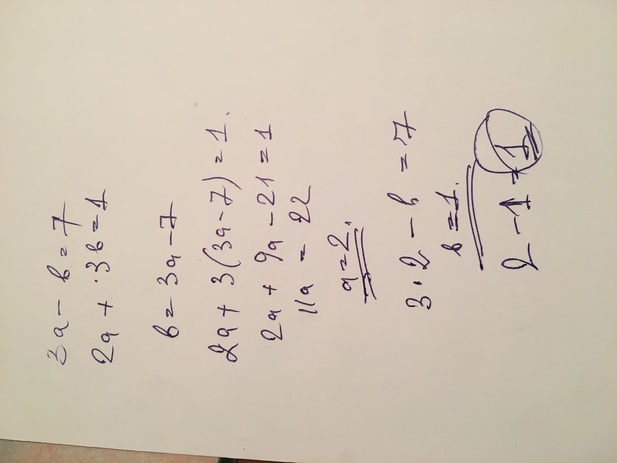 3a - b = 7
2a + 3b = 1
b = 3a - 7
2a + 3(3a - 7) = 1.
2a + 9a - 21 = 1
11a = 22
a = 2.
3 · 2 - b = 7
b = 1.
2 - 1 = 1